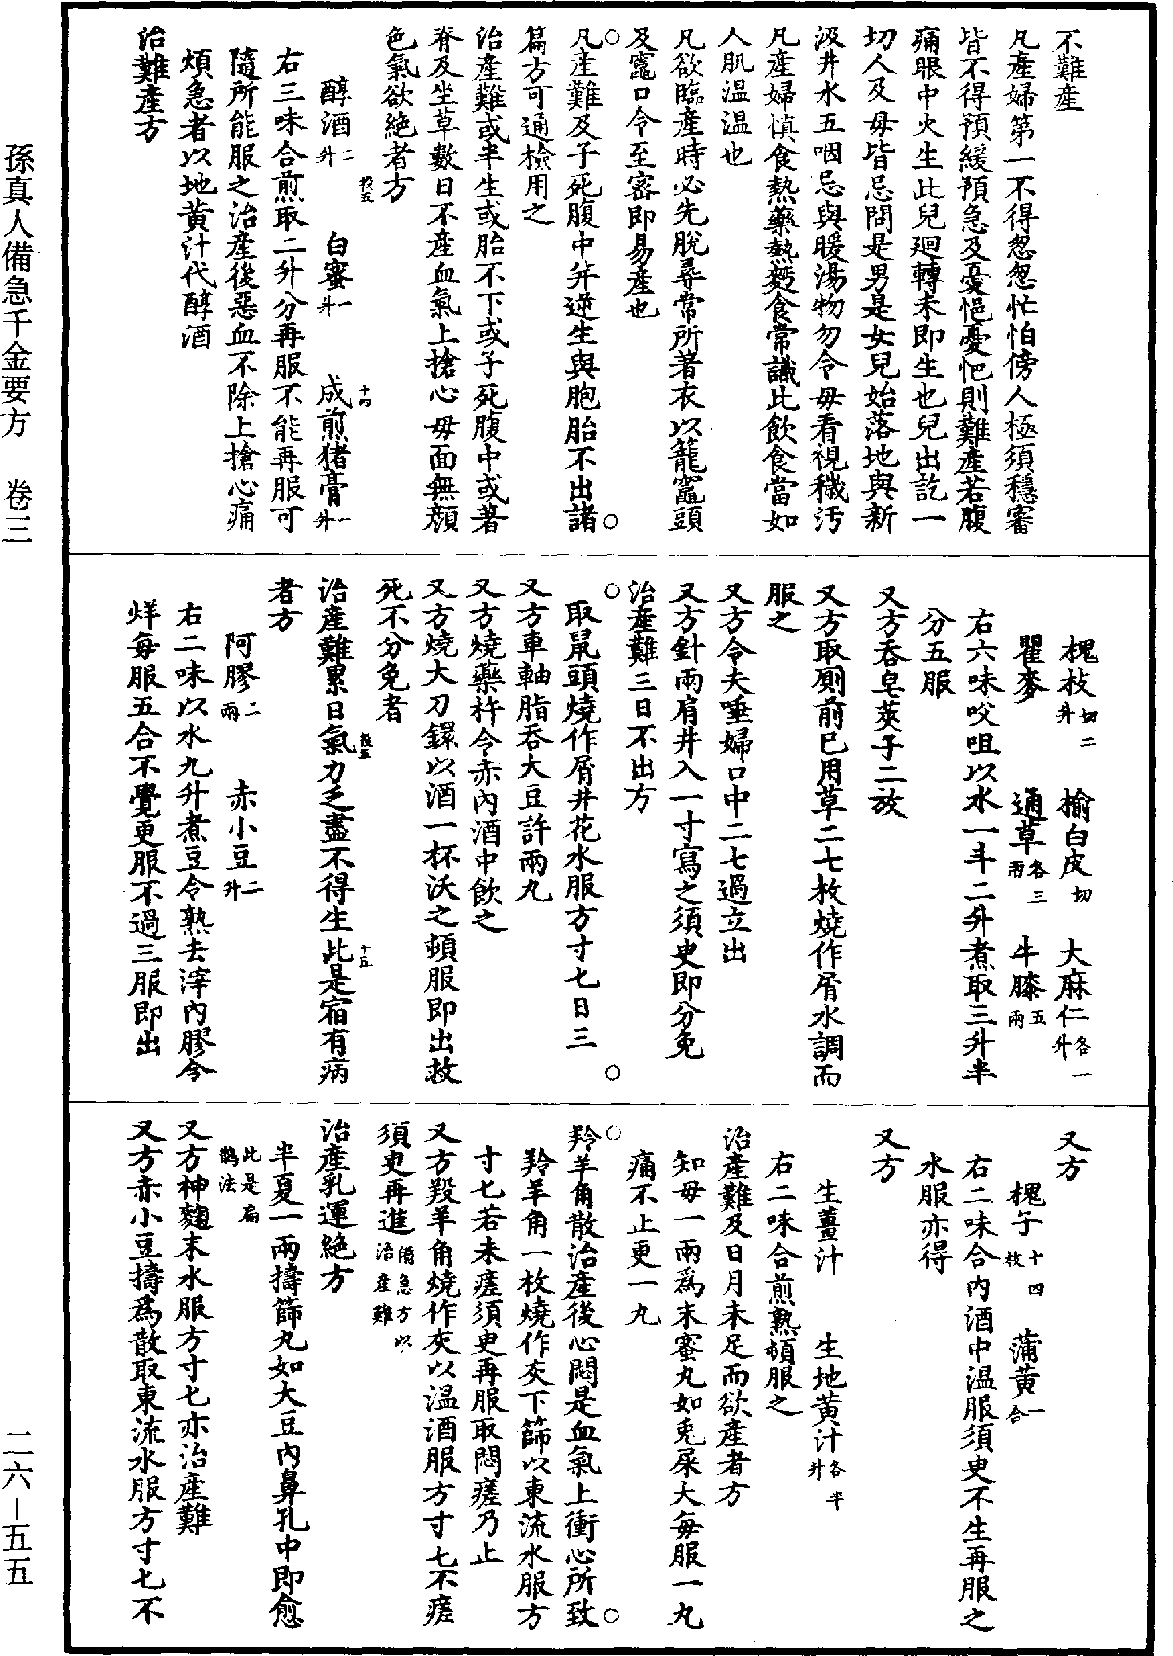 不難產
凡產婦第一不得怱怱忙怕傍人極須穩審
皆不得預緩預急及憂悒憂悒則難產若腹
痛眼中火生此兒迴轉未即生也兒出訖一
切人及母皆忌問是男是女兒始落地與新
汲井水五咽忌與暖湯物勿令母看視穢汚
凡產婦慎食熱藥熱麪食常識此飲食當如
人肌温温也
凡欲臨產時必先脫尋常所著衣以籠竈頭
及竈口令至密即易產也
凡產難及子死腹中并逆生與胞胎不出諸
篇方可通檢用之
治產難或半生或胎不下或子死腹中或著
脊及坐草數日不產血氣上搶心母面無顏
色氣欲絕者方
醇酒二升 白蜜一升 成煎猪膏一升
右三味合煎取二升分再服不能再服可
隨所能服之治產後惡血不除上搶心痛
煩急者以地黃汁代醇酒
治難產方
槐枝切二升 榆白皮切 大麻仁各一升
瞿麥 通草各三兩 牛膝五兩
右六味㕮咀以水一斗二升煮取三升半
分五服
又方吞皂莢子二枚
又方取厠前已用草二七枚燒作屑水調而
服之
又方令夫唾婦口中二七過立出
又方針兩肩井入一寸寫之須臾即分免
治產難三日不出方
取鼠頭燒作屑井花水服方寸匕日三
又方車軸脂吞大豆許兩丸
又方燒藥杵令赤內酒中飲之
又方燒大刀鐶以酒一杯沃之頓服即出救
死不分免者
治產難累日氣力乏盡不得生此是宿有病
者方
阿膠二兩 赤小豆二升
右二味以水九升煮豆令熟去滓內膠令
烊每服五合不覺更服不過三服即出
又方
槐子十四枚 蒲黃一合
右二味合內酒中温服須臾不生再服之
水服亦得
又方
生薑汁 生地黃汁各半升
右二味合煎熟頓服之
治產難及日月未足而欲產者方
知母一兩爲末蜜丸如兎屎大每服一丸
痛不止更一丸
羚羊角散治產後心悶是血氣上衝心所致
羚羊角一枚燒作灰下篩以東流水服方
寸匕若未瘥須臾再服取悶瘥乃止
又方羖羊角燒作灰以温酒服方寸匕不瘥
須臾再進備急方以治產難
治產乳運絕方
半夏一兩擣篩丸如大豆內鼻孔中即愈
此是扁鵲法
又方神麴末水服方寸匕亦治產難
又方赤小豆擣爲散取東流水服方寸匕不
孫真人備急千金要方 卷三
二六—五五